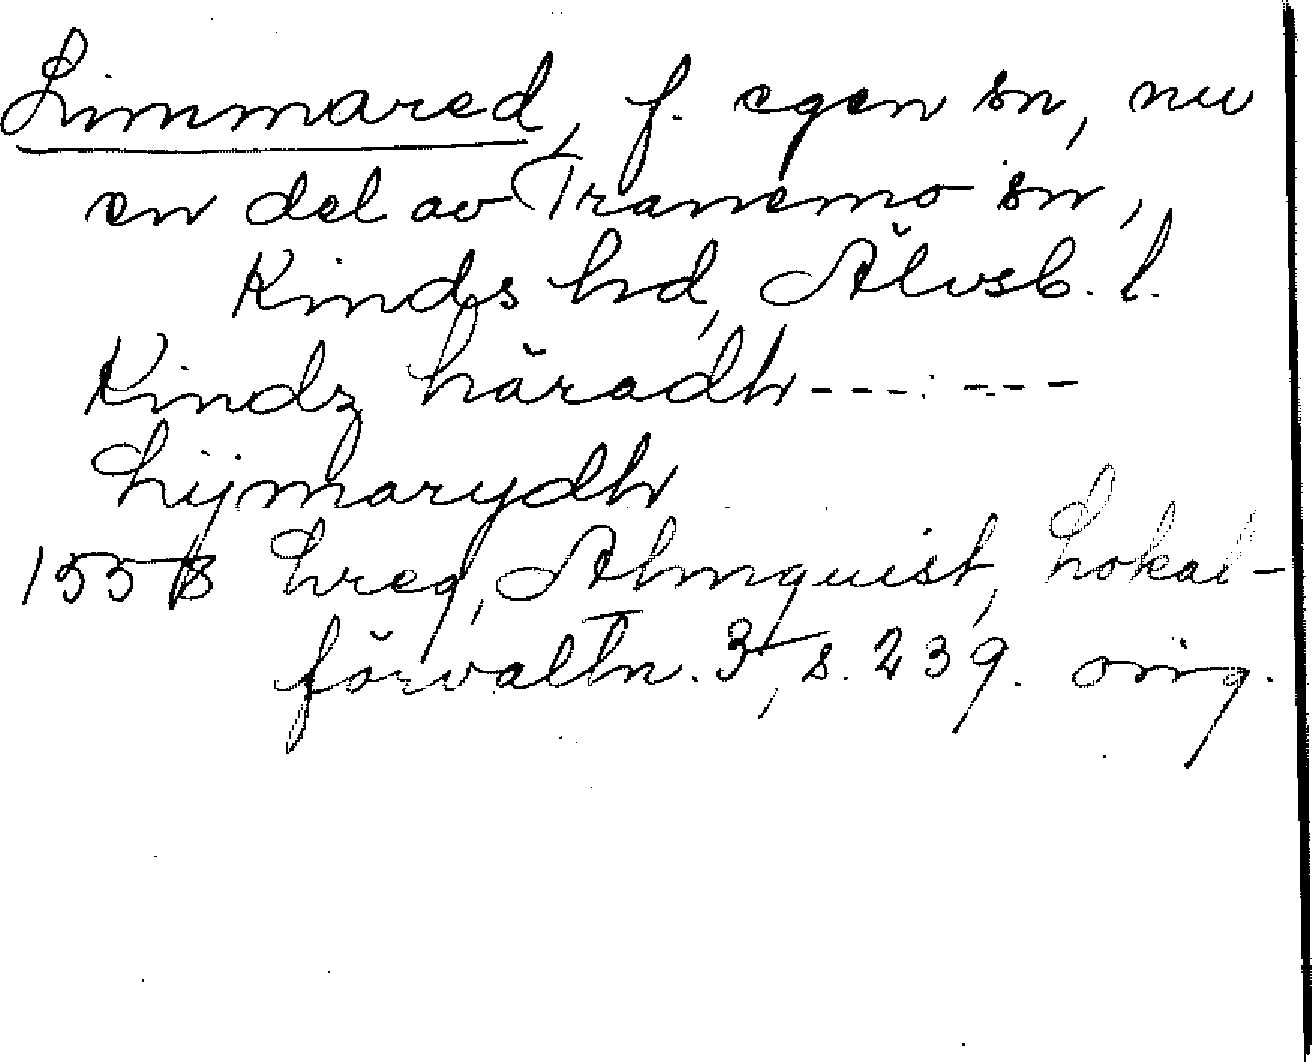 Limmared, f. egen sn, nu
en del av Tranemo sn,
Kinds hd, Älvsb. l.
Kindz häradh --- : ---
Lijmarydh
1558 hreg, Almquist, Lokal-
förvaltn. 3, s. 239. orig.